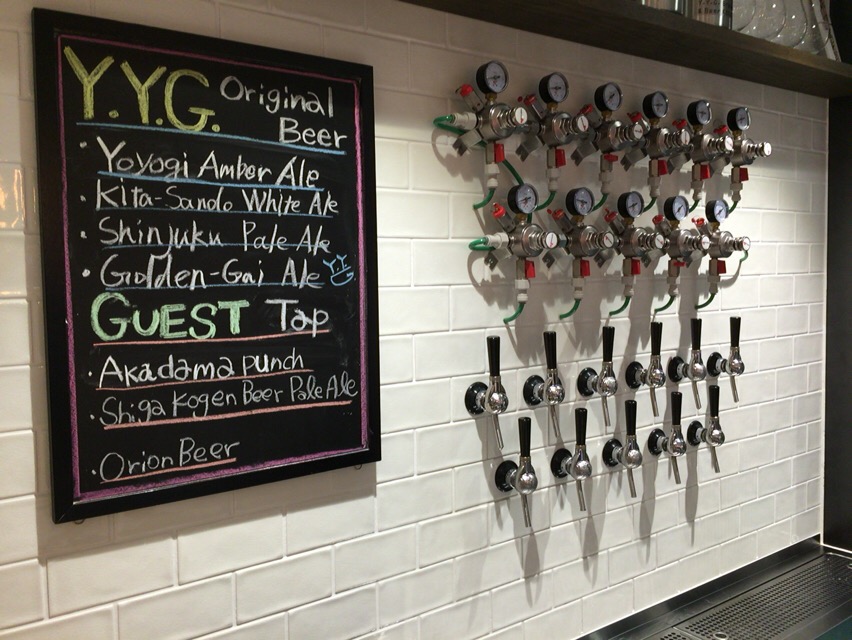 Y.Y.G. Original
Beer
· Yoyogi Amber Ale
· Kita-Sando White Ale
· Shinjuku Pale Ale
· Golden-Gai Ale Y.Y.G
GUEST Tap
· Akadama punch
· Shiga Kogen Beer Pale Ale
· Orion Beer